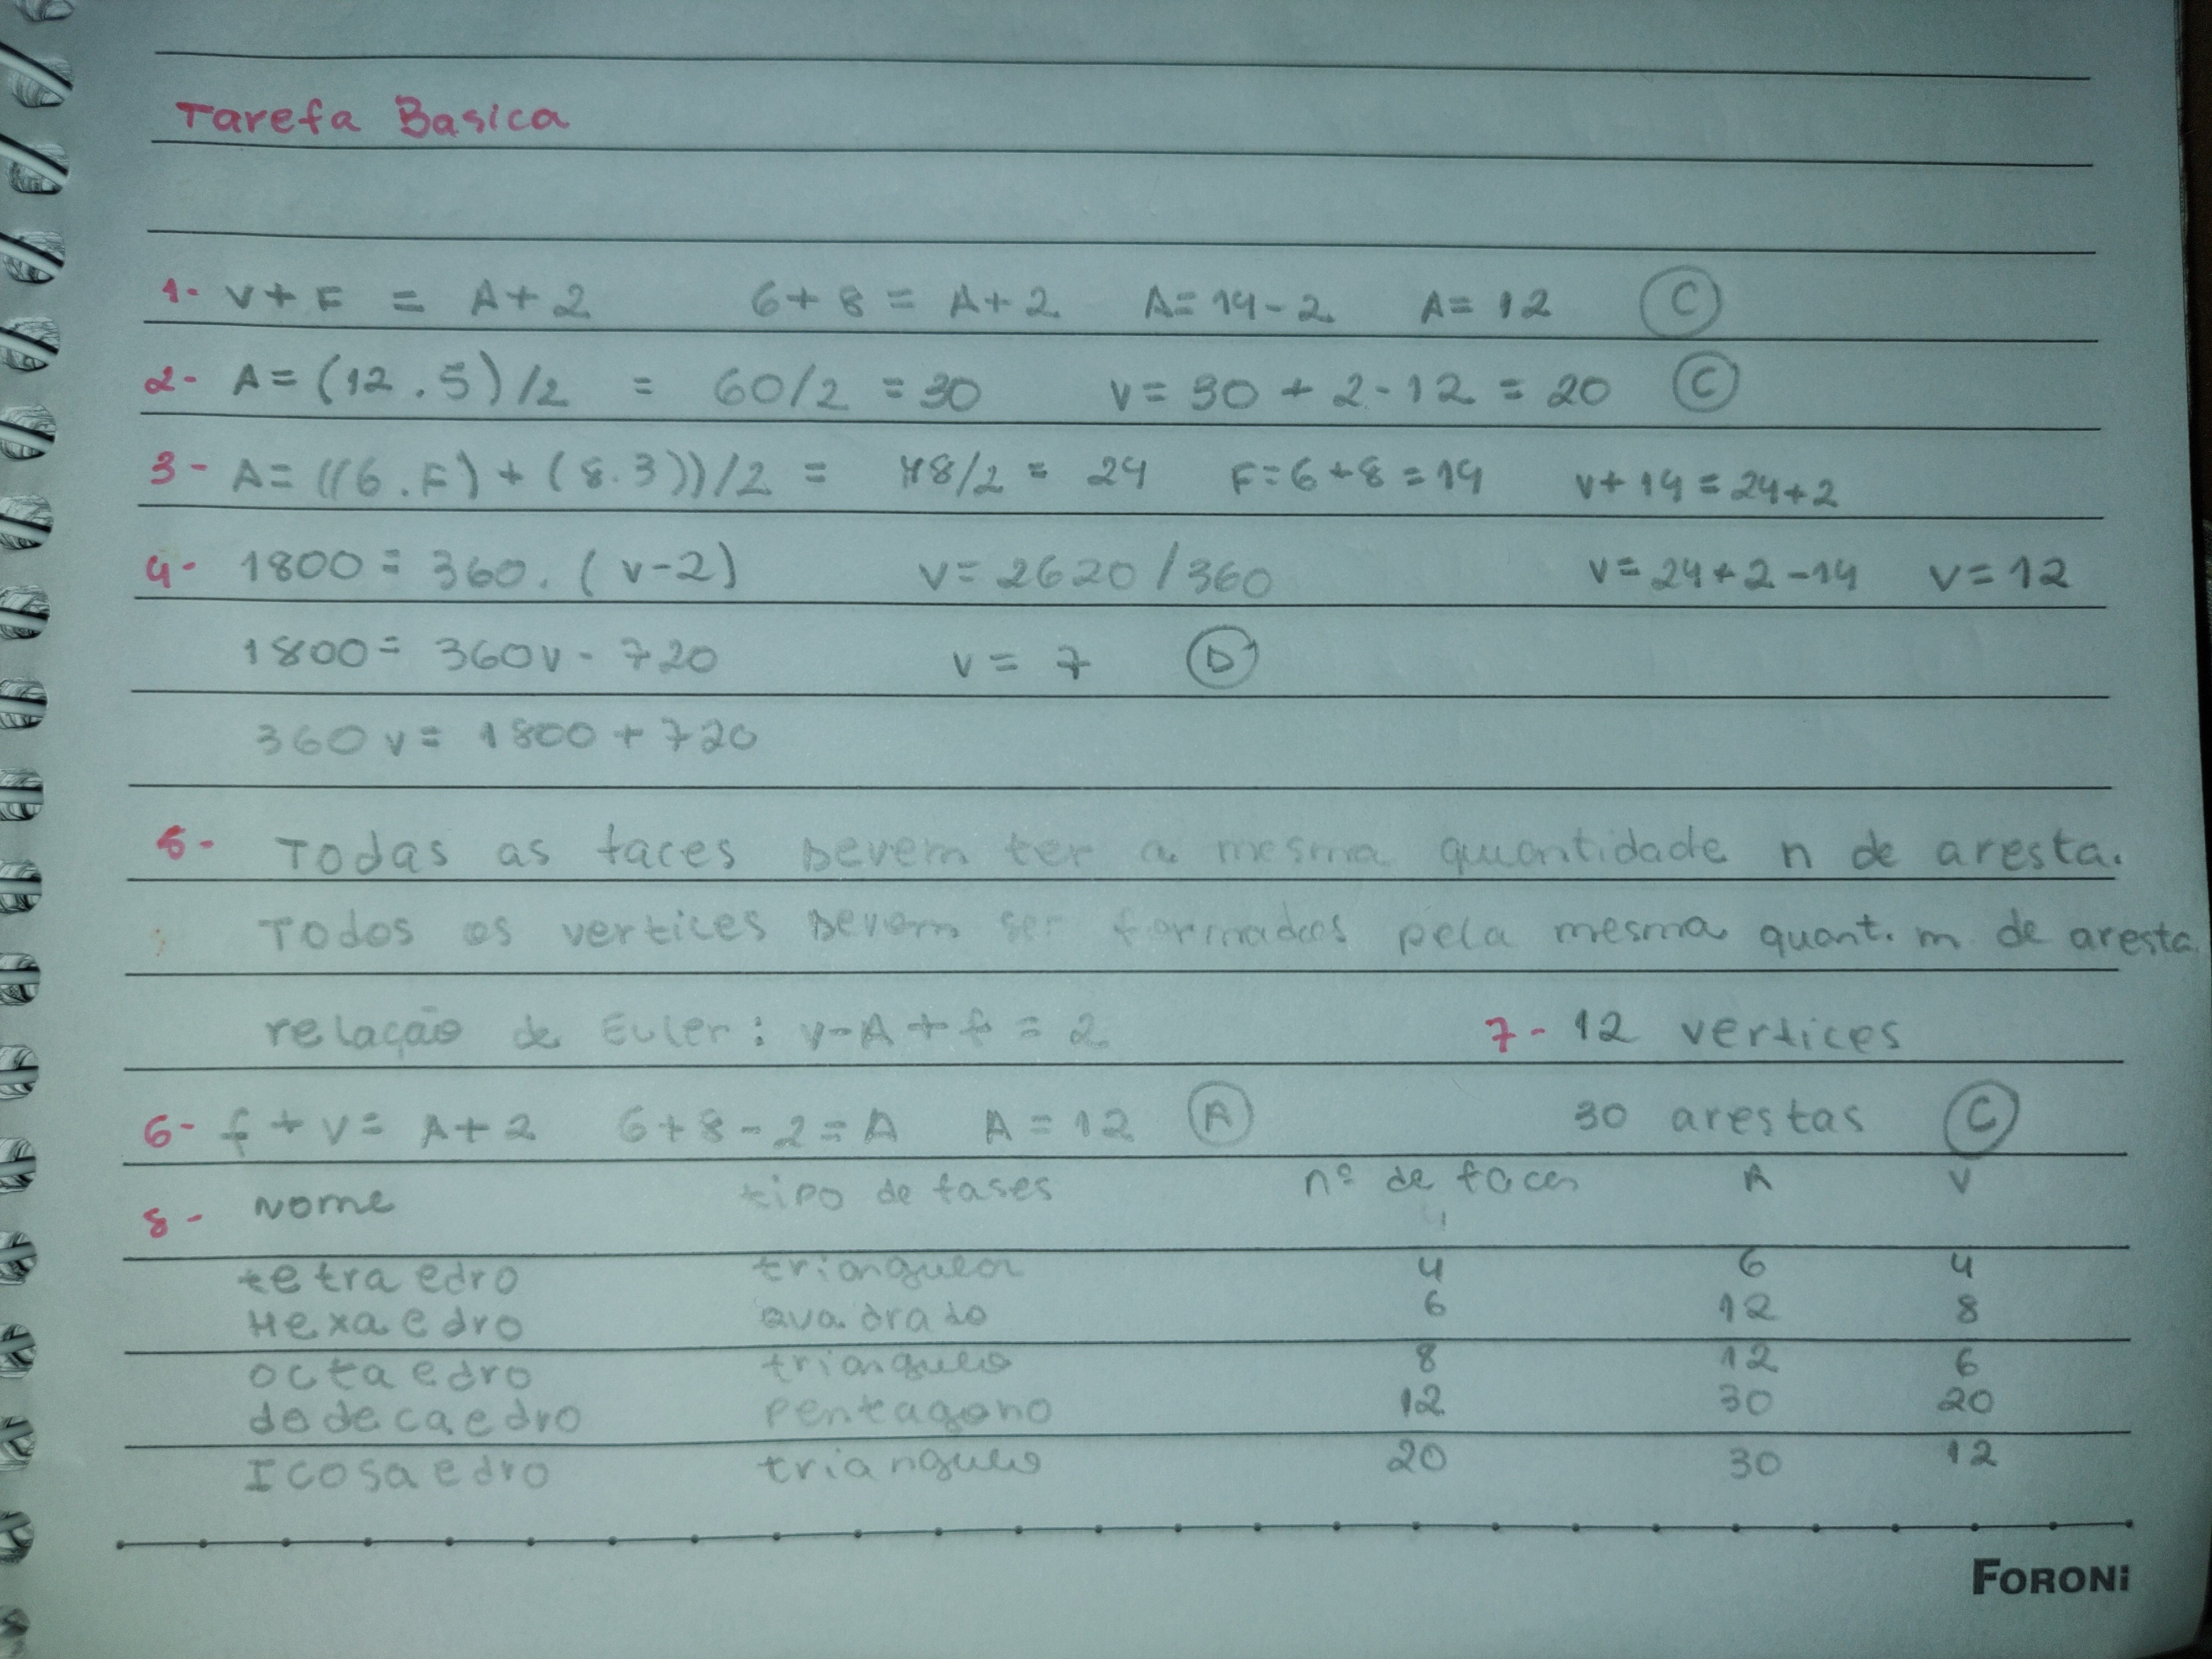 Tarefa Basica
1- V + F = A + 2 6 + 8 = A + 2 A = 14 - 2 A = 12 C
2- A = (12 . 5) / 2 = 60/2 = 30 V = 30 + 2 - 12 = 20 C
3- A = ((6 . F) + (8 . 3)) / 2 = 48/2 = 24 F = 6 + 8 = 14 V + 14 = 24 + 2
V = 24 + 2 - 14 V = 12
4- 1800 = 360 . (V - 2) V = 2620 / 360
1800 = 360V - 720 V = 7 D
360V = 1800 + 720
5- Todas as faces Devem ter a mesma quantidade n de aresta.
Todos os vertices Devem ser formados pela mesma quant. m de aresta
relação de Euler: V - A + f = 2
6- f + V = A + 2 6 + 8 - 2 = A A = 12 A
7- 12 vertices
30 arestas C
8- Nome tipo de fases nº de faces A V
tetraedro triangulo 4 6 4
Hexaedro Quadrado 6 12 8
octaedro triangulo 8 12 6
dodecaedro Pentagono 12 30 20
Icosaedro triangulo 20 30 12
FORONI